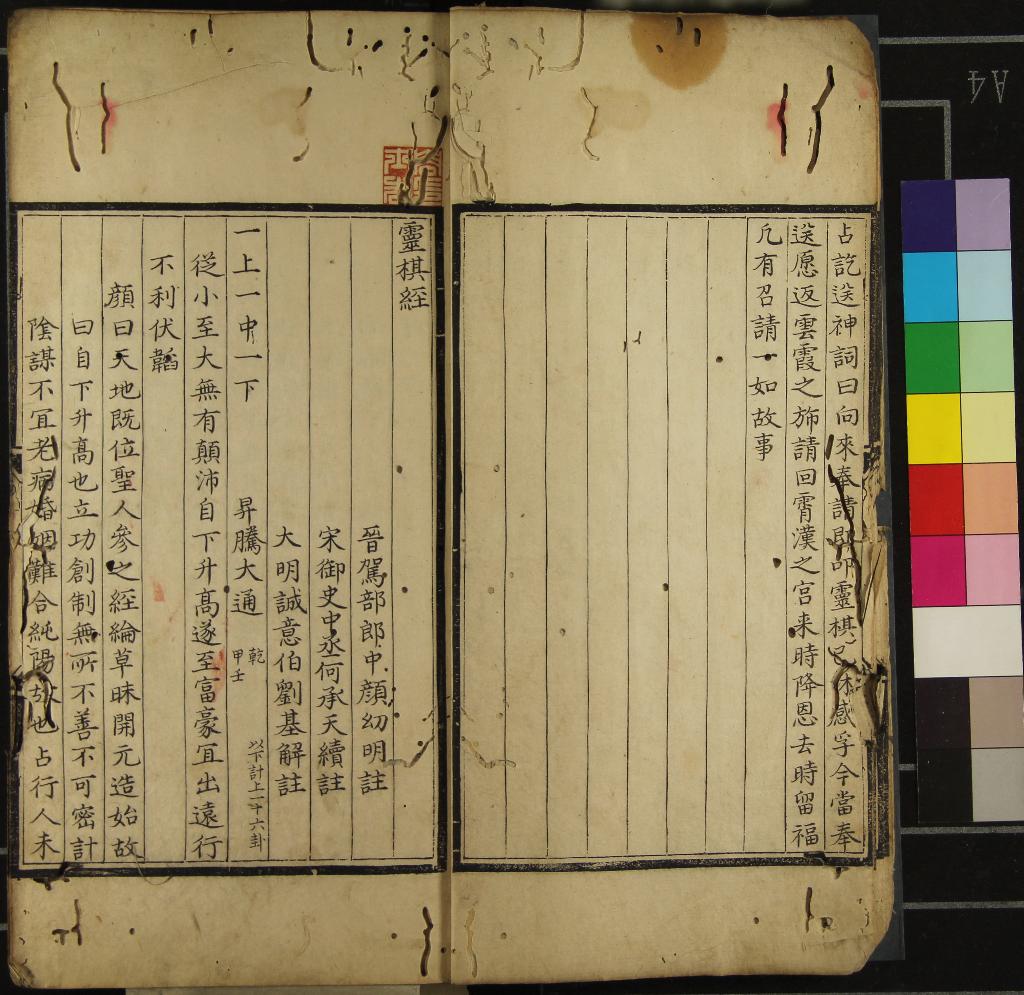 占訖送神詞曰向來奉請即叩靈棋已沐感孚今當奉
送愿返雲霞之斾請回霄漢之宮来時降恩去時留福
凢有召請一如故事
靈棋經
晉駕部郎中顔幼明註
宋御史中丞何承天續註
大明誠意伯劉基解註
一上一中一下 昇騰大通 乾 甲壬 以下計上一十六卦
從小至大無有顛沛自下升高遂至富豪宜出遠行
不利伏韜
顔曰天地既位聖人參之經綸草昧開元造始故
曰自下升高也立功創制無所不善不可密計
陰謀不宜老病婚姻難合純陽故也占行人未
A4